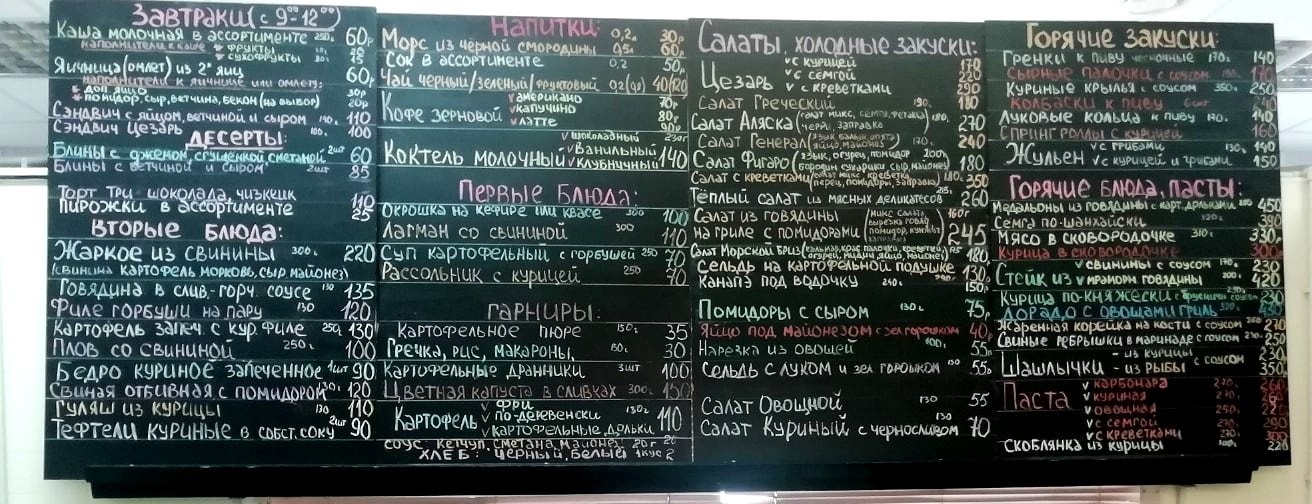 Завтраки (с 9⁰⁰-12⁰⁰)
Каша молочная в ассортименте 250г 60р
наполнители к каше * фрукты
* сухофрукты
Яичница (омлет) из 2х яиц 60р
наполнители к яичнице или омлету:
* доп. яйцо 30р
* помидор, сыр, ветчина, бекон (на выбор) 20р
Сэндвич с яйцом, ветчиной и сыром 190г 110
Сэндвич Цезарь 100г 100
Десерты:
Блины с джемом, сгущенкой, сметаной 2шт 60
Блины с ветчиной и сыром 2шт 85
Торт Три шоколада, чизкейк 110
Пирожки в ассортименте 25
Вторые блюда:
Жаркое из свинины 300г 220
(свинина картофель морковь, сыр, майонез)
Говядина в слив.-горч. соусе 130 135
Филе горбуши на пару 130 120
Картофель запеч. с кур. филе 250г 130
Плов со свининой 250г 100
Бедро куриное запеченное 1шт 90
Свиная отбивная с помидором 130г 120
Гуляш из курицы 130 110
Тефтели куриные в собст. соку 2шт 90
Напитки:
Морс из черной смородины 0,2л 30р
0,5л 60р
Сок в ассортименте 0,2 50р
Чай черный/зеленый/фруктовый 0,2(0,8) 40/120
Кофе зерновой v американо 70р
v капучино 80г
v латте 90р
Коктель молочный v шоколадный 250г
v Ванильный 140
v Клубничный
Первые блюда:
Окрошка на кефире или квасе 300 100
Лагман со свининой 300 110
Суп картофельный с горбушей 250 70
Рассольник с курицей 250 70
Гарниры:
Картофельное пюре 150г 35
Гречка, рис, макароны. 150г 30
Картофельные драники 3шт 100
Цветная капуста в сливках 300г 150
Картофель v фри
v по-деревенски 130г 110
v картофельные дольки
Соус: кетчуп, сметана, майонез 20г 20
Хлеб: черный, белый 1кус 2
Салаты, холодные закуски:
Цезарь v с курицей 170
v с семгой 220
v с креветками 290
Салат Греческий 190г 180
Салат Аляска (салат микс, семга, редиска, черри, заправка) 180г 270
Салат Генерал (язык, балык, опята, яйцо, майонез) 170г 240
Салат Фигаро (язык, огурец, помидор, 200г 180
бородин. сухарики, сыр, майонез)
Салат с креветками (салат микс, креветка, 180г 350
перец, помидоры, заправка)
Тёплый салат из мясных деликатесов 215г 260
Салат из говядины (микс салата, 160г
на гриле с помидорами вырезка говяд. 245
помидор, кунжут
Салат Морской Бриз (кальмар, краб. палочки, креветки, 180
огурец, мидии, яйцо, майонез)
Сельдь на картофельной подушке 130р
Канапэ под водочку 240г 150р
Помидоры с сыром 130г 75р
Яйцо под майонезом с зел. горошком 40р
Нарезка из овощей 100г 55р
Сельдь с луком и зел. горошком 130 55р
Салат Овощной 130 55
Салат Куриный с черносливом 130 70
Горячие закуски:
Гренки к пиву чесночные 170г 140
Сырные палочки с соусом 170
Куриные крылья с соусом 350г 250
Колбаски к пиву 6шт 240
Луковые кольца к пиву 140
Спринг роллы с курицей 160
Жульен v с грибами 130г 140
v с курицей и грибами 150
Горячие блюда, пасты:
Медальоны из говядины с карт. дольками 450
Семга по-шанхайски 390
Мясо в сковородочке 310г 330р
Курица в сковородочке 300р
Стейк из v свинины с соусом 170г 230
v мраморн. говядины 200г 420
Курица по-княжески с брусничн. соусом 230
Дорадо с овощами гриль 430
Жаренная корейка на кости с соусом 270
Свиные ребрышки в маринаде с соусом 250
Шашлычки - из курицы с соусом 230
- из рыбы 350
Паста v карбонара 270г 260
v куриная 270г 260
v овощная 250г
v с семгой 270г 290
v с креветками 300
Скоблянка из курицы 220